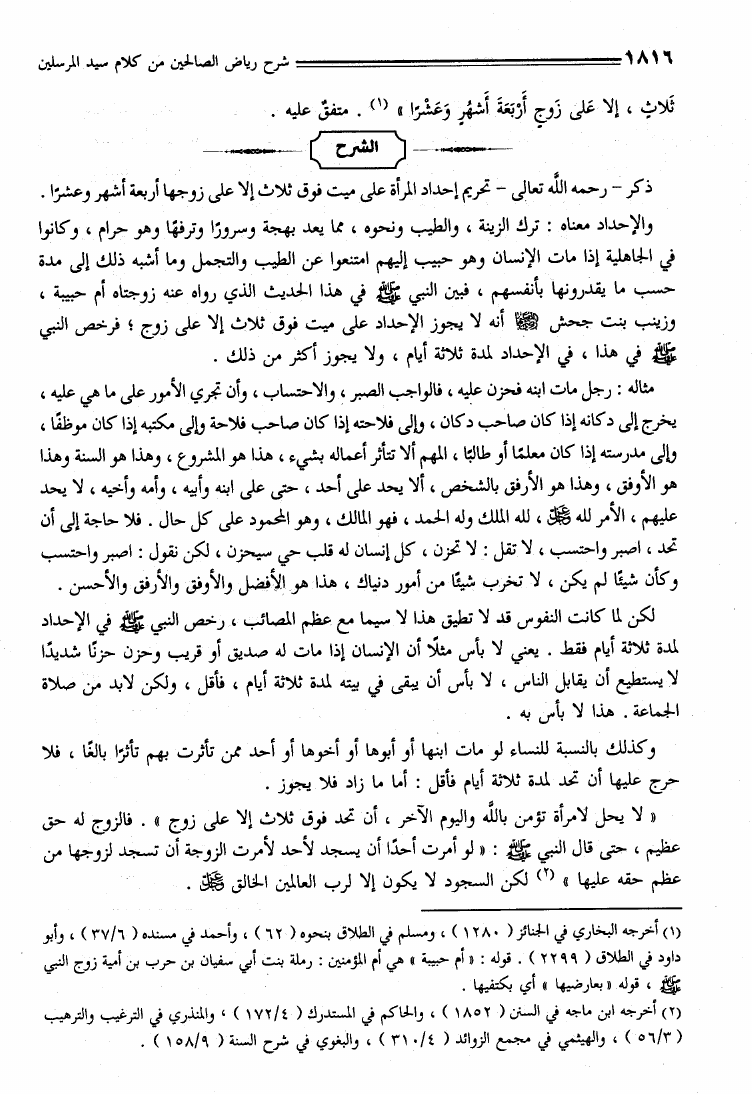 ١٨١٦ شرح رياض الصالحين من كلام سيد المرسلين
ثَلاثٍ ، إلا عَلى زَوجٍ أَرْبَعَةَ أَشهُرٍ وَعَشْرًا » (١) . متفقٌ عليه .
الشرح
ذكر – رحمه اللَّه تعالى – تحريم إحداد المرأة على ميت فوق ثلاث إلا على زوجها أربعة أشهر وعشرًا .
والإحداد معناه : ترك الزينة ، والطيب ونحوه ، مما يعد بهجة وسرورًا وترفهًا وهو حرام ، وكانوا
في الجاهلية إذا مات الإنسان وهو حبيب إليهم امتنعوا عن الطيب والتجمل وما أشبه ذلك إلى مدة
حسب ما يقدرونها بأنفسهم ، فبين النبي ﷺ في هذا الحديث الذي رواه عنه زوجتاه أم حبيبة ،
وزينب بنت جحش أنه لا يجوز الإحداد على ميت فوق ثلاث إلا على زوج ؛ فرخص النبي
ﷺ في هذا ، في الإحداد لمدة ثلاثة أيام ، ولا يجوز أكثر من ذلك .
مثاله : رجل مات ابنه فحزن عليه ، فالواجب الصبر ، والاحتساب ، وأن تجري الأمور على ما هي عليه ،
يخرج إلى دكانه إذا كان صاحب دكان ، وإلى فلاحته إذا كان صاحب فلاحة وإلى مكتبه إذا كان موظفًا ،
وإلى مدرسته إذا كان معلمًا أو طالبًا ، المهم ألا تتأثر أعماله بشيء ، هذا هو المشروع ، وهذا هو السنة وهذا
هو الأوفق ، وهذا هو الأرفق بالشخص ، ألا يحد على أحد ، حتى على ابنه وأبيه ، وأمه وأخيه ، لا يحد
عليهم ، الأمر لله ﷻ ، لله الملك وله الحمد ، فهو المالك ، وهو المحمود على كل حال . فلا حاجة إلى أن
تحد ، اصبر واحتسب ، لا تقل : لا تحزن ، كل إنسان له قلب حي سيحزن ، لكن نقول : اصبر واحتسب
وكأن شيئًا لم يكن ، لا تخرب شيئًا من أمور دنياك ، هذا هو الأفضل والأوفق والأرفق والأحسن .
لكن لما كانت النفوس قد لا تطيق هذا لا سيما مع عظم المصائب ، رخص النبي ﷺ في الإحداد
لمدة ثلاثة أيام فقط . يعني لا بأس مثلًا أن الإنسان إذا مات له صديق أو قريب وحزن حزنًا شديدًا
لا يستطيع أن يقابل الناس ، لا بأس أن يبقى في بيته لمدة ثلاثة أيام ، فأقل ، ولكن لابد من صلاة
الجماعة . هذا لا بأس به .
وكذلك بالنسبة للنساء لو مات ابنها أو أبوها أو أخوها أو أحد ممن تأثرت بهم تأثرًا بالغًا ، فلا
حرج عليها أن تحد لمدة ثلاثة أيام فأقل : أما ما زاد فلا يجوز .
« لا يحل لامرأة تؤمن باللَّه واليوم الآخر ، أن تحد فوق ثلاث إلا على زوج » . فالزوج له حق
عظيم ، حتى قال النبي ﷺ : « لو أمرت أحدًا أن يسجد لأحد لأمرت الزوجة أن تسجد لزوجها من
عظم حقه عليها » (٢) لكن السجود لا يكون إلا لرب العالمين الخالق ﷻ .
(١) أخرجه البخاري في الجنائز ( ١٢٨٠ ) ، ومسلم في الطلاق بنحوه ( ٦٢ ) ، وأحمد في مسنده ( ٣٧/٦ ) ، وأبو
داود في الطلاق ( ٢٢٩٩ ) . قوله : «أم حبيبة » هي أم المؤمنين : رملة بنت أبي سفيان بن حرب بن أمية زوج النبي
ﷺ ، قوله «بعارضيها » أي بكتفيها .
(٢) أخرجه ابن ماجه في السنن ( ١٨٥٢ ) ، والحاكم في المستدرك ( ١٧٢/٤ ) ، والمنذري في الترغيب والترهيب
( ٥٦/٣ ) ، والهيثمي في مجمع الزوائد ( ٣١٠/٤ ) ، والبغوي في شرح السنة ( ١٥٨/٩ ) .